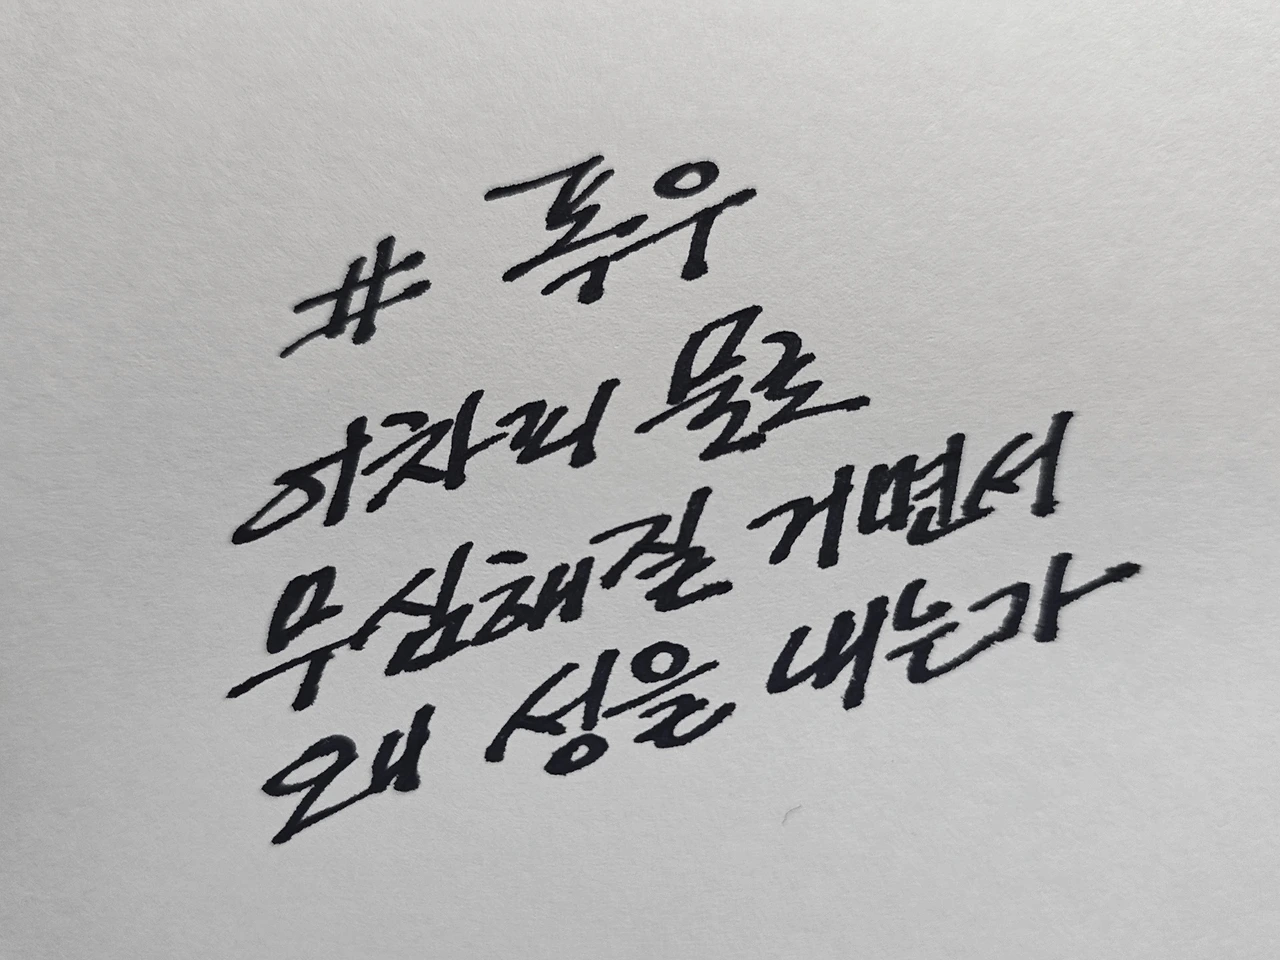 # 폭우
어차피 물로
무심해질 거면서
왜 성을 내는가